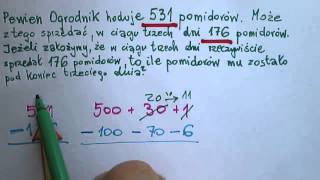 Pewien Ogrodnik hoduje 531 pomidorów. Może
z tego sprzedać, w ciągu trzech dni 176 pomidorów.
Jeżeli założymy, że w ciągu trzech dni rzeczywiście
sprzedał 176 pomidorów, to ile pomidorów mu zostało
pod koniec trzeciego dnia?
20 11
500 + 30 + 1
- 100 - 70 - 6